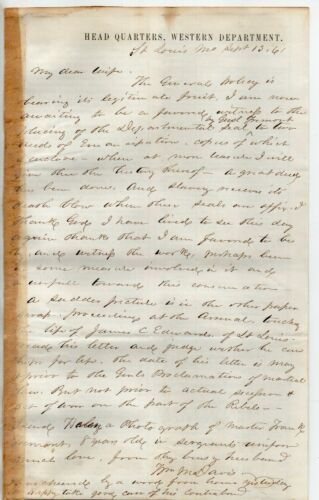 HEAD QUARTERS, WESTERN DEPARTMENT.
St Louis Mo Sept 13. 61
My dear Wife.
The Generals Policy is
bearing its legitimate fruit. I am now
awaiting to be a favored witness to the
Genl Fremont
affixing of the Departmental seal to two
deeds of Emancipation, copies of which
I enclose when at mon leisure I will
give thee the history thereof - A great deed
has been done. And Slavery receives its
death blow when these seals are affixed
thank God, I have lived to see this day
again thanks that I am favored to be
and witness the work, perhaps been
in some measure involved in it and
toward this consummation
A sadder picture is in the other paper
proceedings at the Annual
life of James C Edwards. of St Louis
read this letter and judge whether he can
hope for life. the date of his letter is
prior to the Genls Proclamation of martial
law. But not prior to actual secession &
act of war on the part of the Rebels -
I send Haley a Photograph of master Frank
Fremont. 8 years old in sergeants uniform
much love, from thy busy husband
Wm M Davis -
by a word from home yesterday
take good care of his Comeback